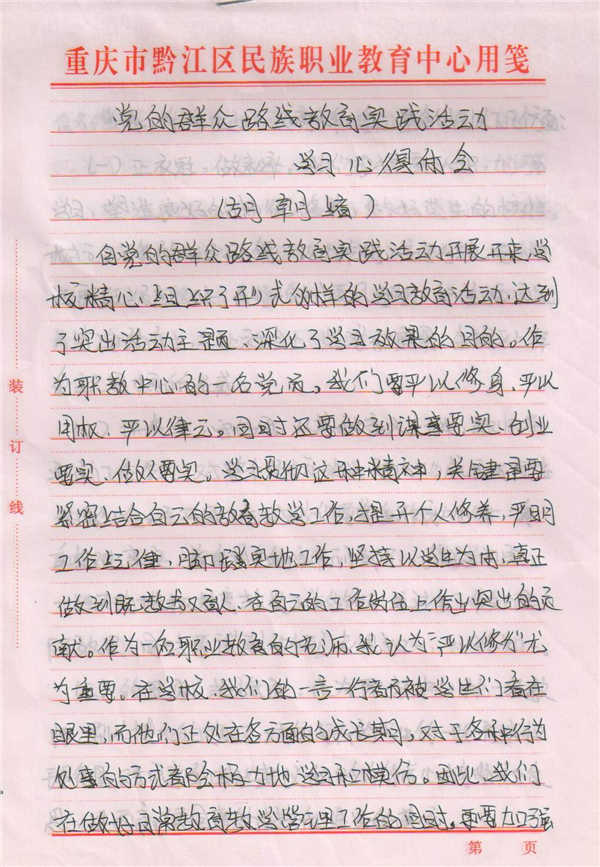 重庆市黔江区民族职业教育中心用笺
党的群众路线教育实践活动
学习心得体会
(胡朝
自党的群众路线教育实践活动开展开来,学
校精心组织了形式多样的学习教育活动,达到
了突出活动主题,深化了学习效果的目的。作
为职教中心的一名党员。我们要严以修身,严以
用权,严以律己。同时还要做到谋事要实、创业
要实、做人要实。学习贯彻这种精神,关键是要
紧密结合自己的教育教学工作,提升个人修养,严明
工作纪律,脚踏实地工作,坚持以学生为本,真正
做到既教书又育人,在自己的工作岗位上作出突出的贡
献。作为一位职业教育的老师,我认为"严以修身"尤
为重要。在学校,我们的一言一行都被学生们看在
眼里,而他们正处在各方面的成长期。对于各种行为
处事的方式都会极力地学习和模仿。因此,我们
在做好日常教育教学管理工作的同时。更要加强
装
订
线
第 页